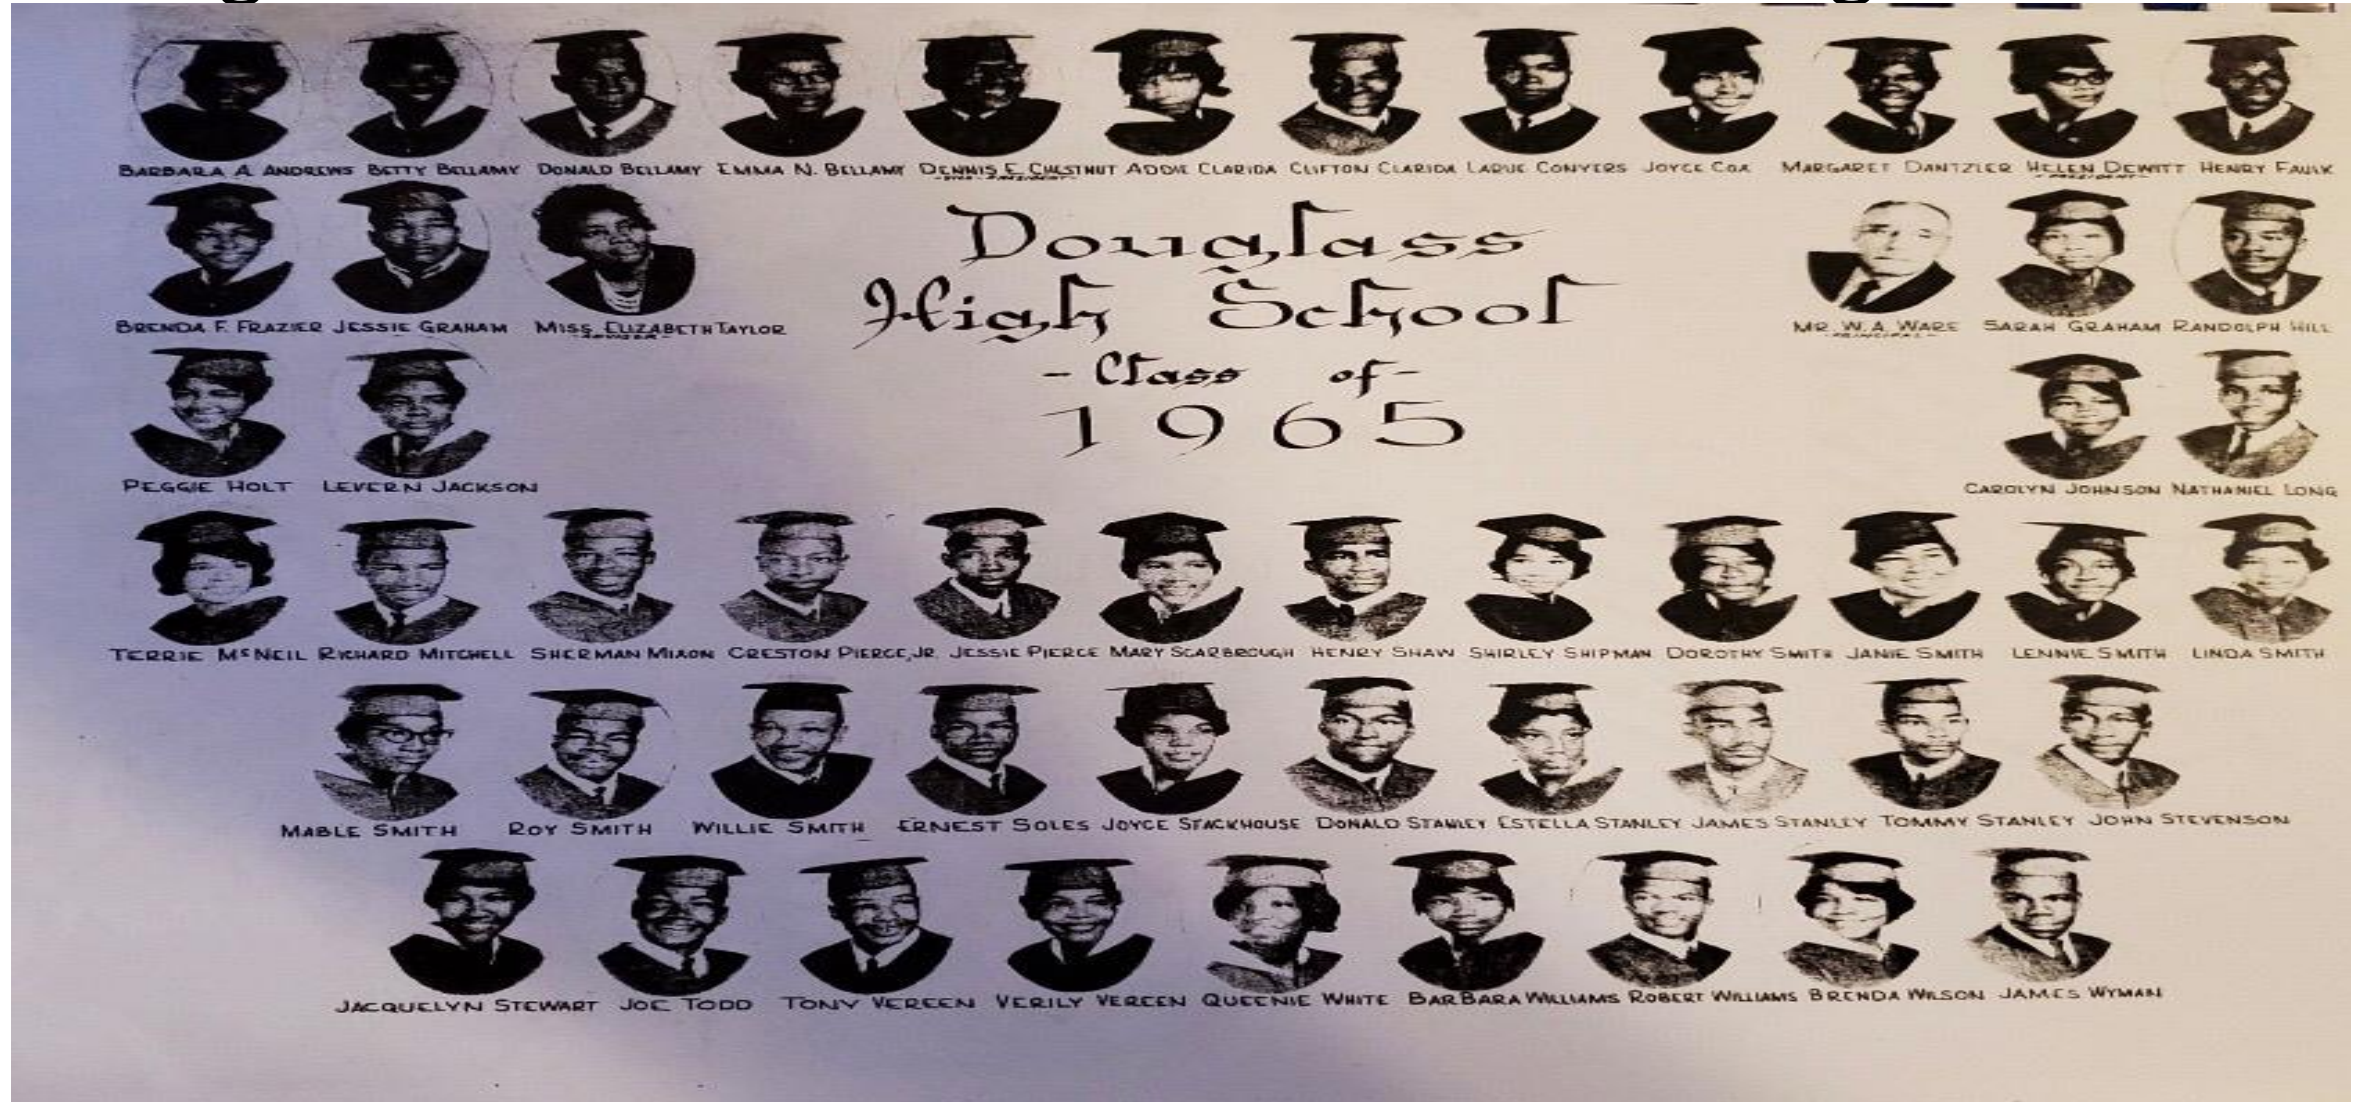 BARBARA A. ANDREWS BETTY BELLAMY DONALD BELLAMY EMMA N. BELLAMY DENNIS E. CHESTNUT ADDIE CLARIDA CLIFTON CLARIDA LARUE CONYERS JOYCE COX MARGARET DANTZLER HELEN DEWITT HENRY FAULK
-VICE-PRESIDENT- -PRESIDENT-
Douglass
High School
- Class of -
1965
BRENDA F. FRAZIER JESSIE GRAHAM MISS ELIZABETH TAYLOR MR. W. A. WARE SARAH GRAHAM RANDOLPH HILL
-ADVISOR- -PRINCIPAL-
PEGGIE HOLT LEVERN JACKSON CAROLYN JOHNSON NATHANIEL LONG
TERRIE McNEIL RICHARD MITCHELL SHERMAN MIXON CRESTON PIERCE, JR. JESSIE PIERCE MARY SCARBROUGH HENRY SHAW SHIRLEY SHIPMAN DOROTHY SMITH JANIE SMITH LENNIE SMITH LINDA SMITH
MABLE SMITH ROY SMITH WILLIE SMITH ERNEST SOLES JOYCE STACKHOUSE DONALD STANLEY ESTELLA STANLEY JAMES STANLEY TOMMY STANLEY JOHN STEVENSON
JACQUELYN STEWART JOE TODD TONY VEREEN VERILY VEREEN QUEENIE WHITE BARBARA WILLIAMS ROBERT WILLIAMS BRENDA WILSON JAMES WYMAN